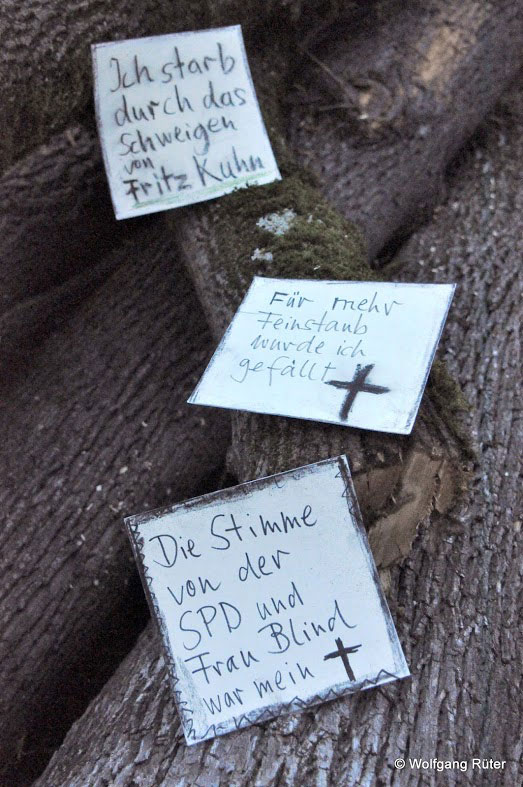 Ich starb
durch das
Schweigen
von
Fritz Kuhn
Für mehr
Feinstaub
wurde ich
gefällt
Die Stimme
von der
SPD und
Frau Blind
war mein
© Wolfgang Rüter